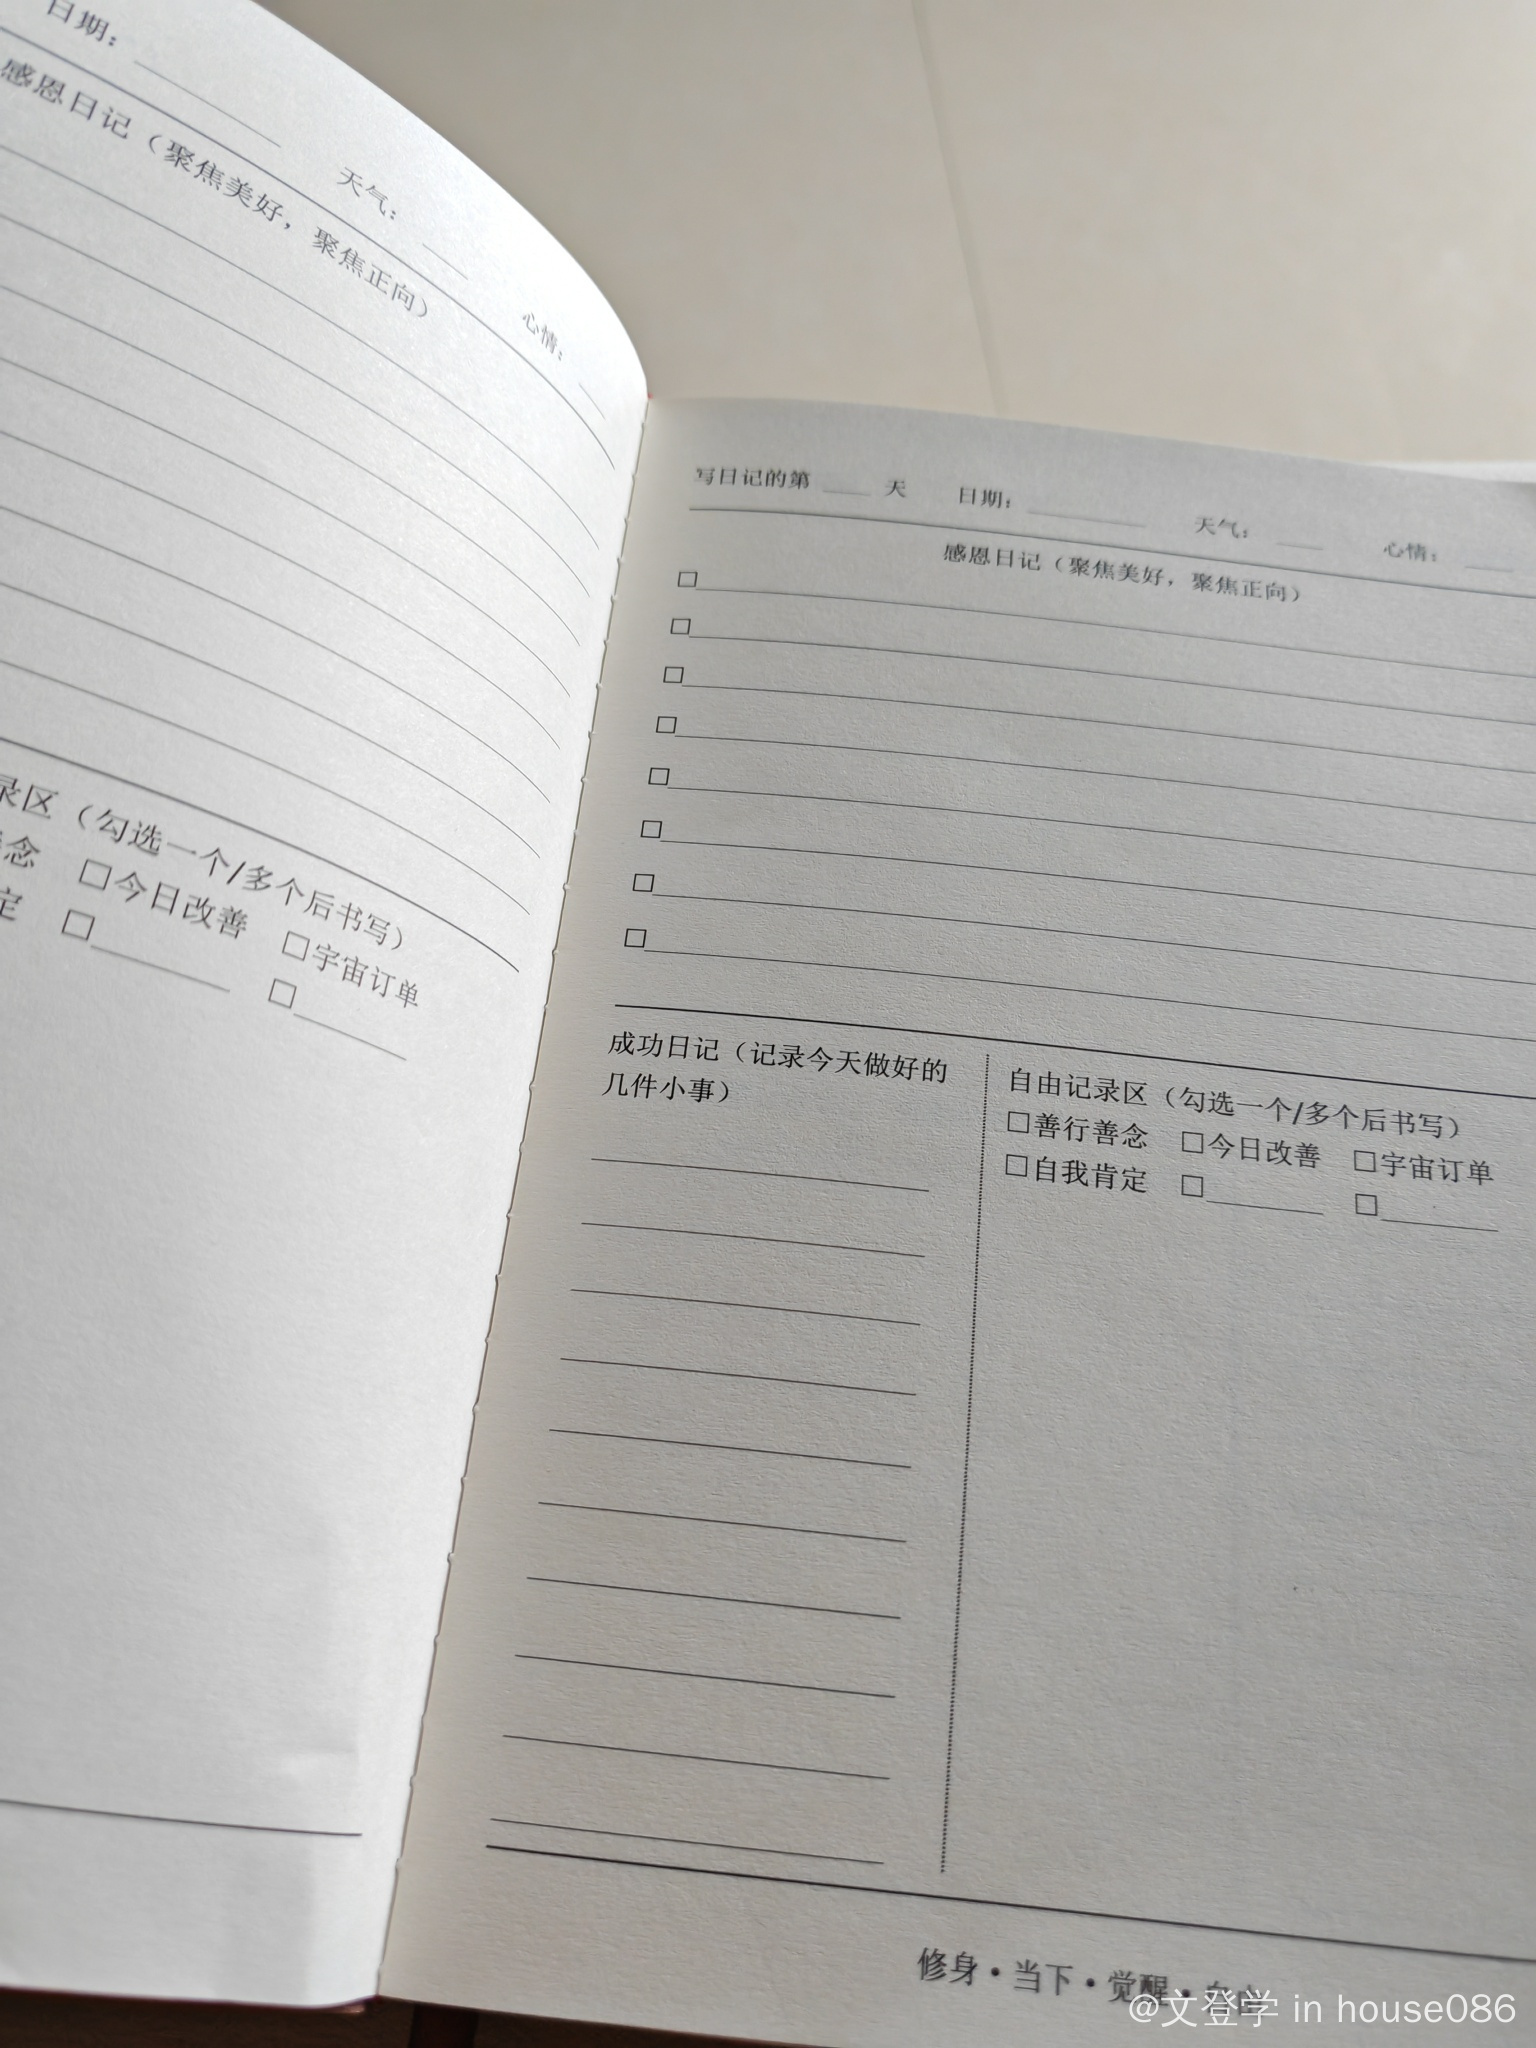 日期：
天气：
心情：
感恩日记（聚焦美好，聚焦正向）
录区（勾选一个/多个后书写）
念 □今日改善 □宇宙订单
定 □ □
写日记的第 天 日期： 天气： 心情：
感恩日记（聚焦美好，聚焦正向）
□
□
□
□
□
□
□
□
成功日记（记录今天做好的
几件小事）
自由记录区（勾选一个/多个后书写）
□善行善念 □今日改善 □宇宙订单
□自我肯定 □ □
修身·当下·觉醒·
@文登学 in house086